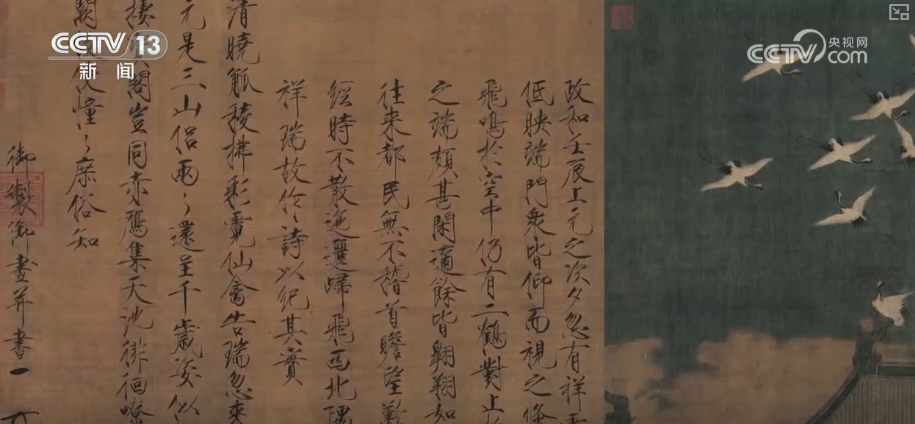 CCTV 13
新闻
CCTV 央视网
com
政和壬辰上元之次夕忽有祥
低映端门众皆仰而視之倏
飛鳴於空中仍有二鶴對上
之端頗甚閑適餘皆翱翔如
往来都民無不稽首瞻望歎
經時不散迤邐歸飛西北隅
祥瑞故作詩以紀其實
清曉觚稜拂彩霓仙禽告瑞忽来
元是三山侣兩〻還呈千歲姿似
棲閣豈同赤鴈集天池徘徊嘹
闕 憧〻庶俗知
御製御畫并書